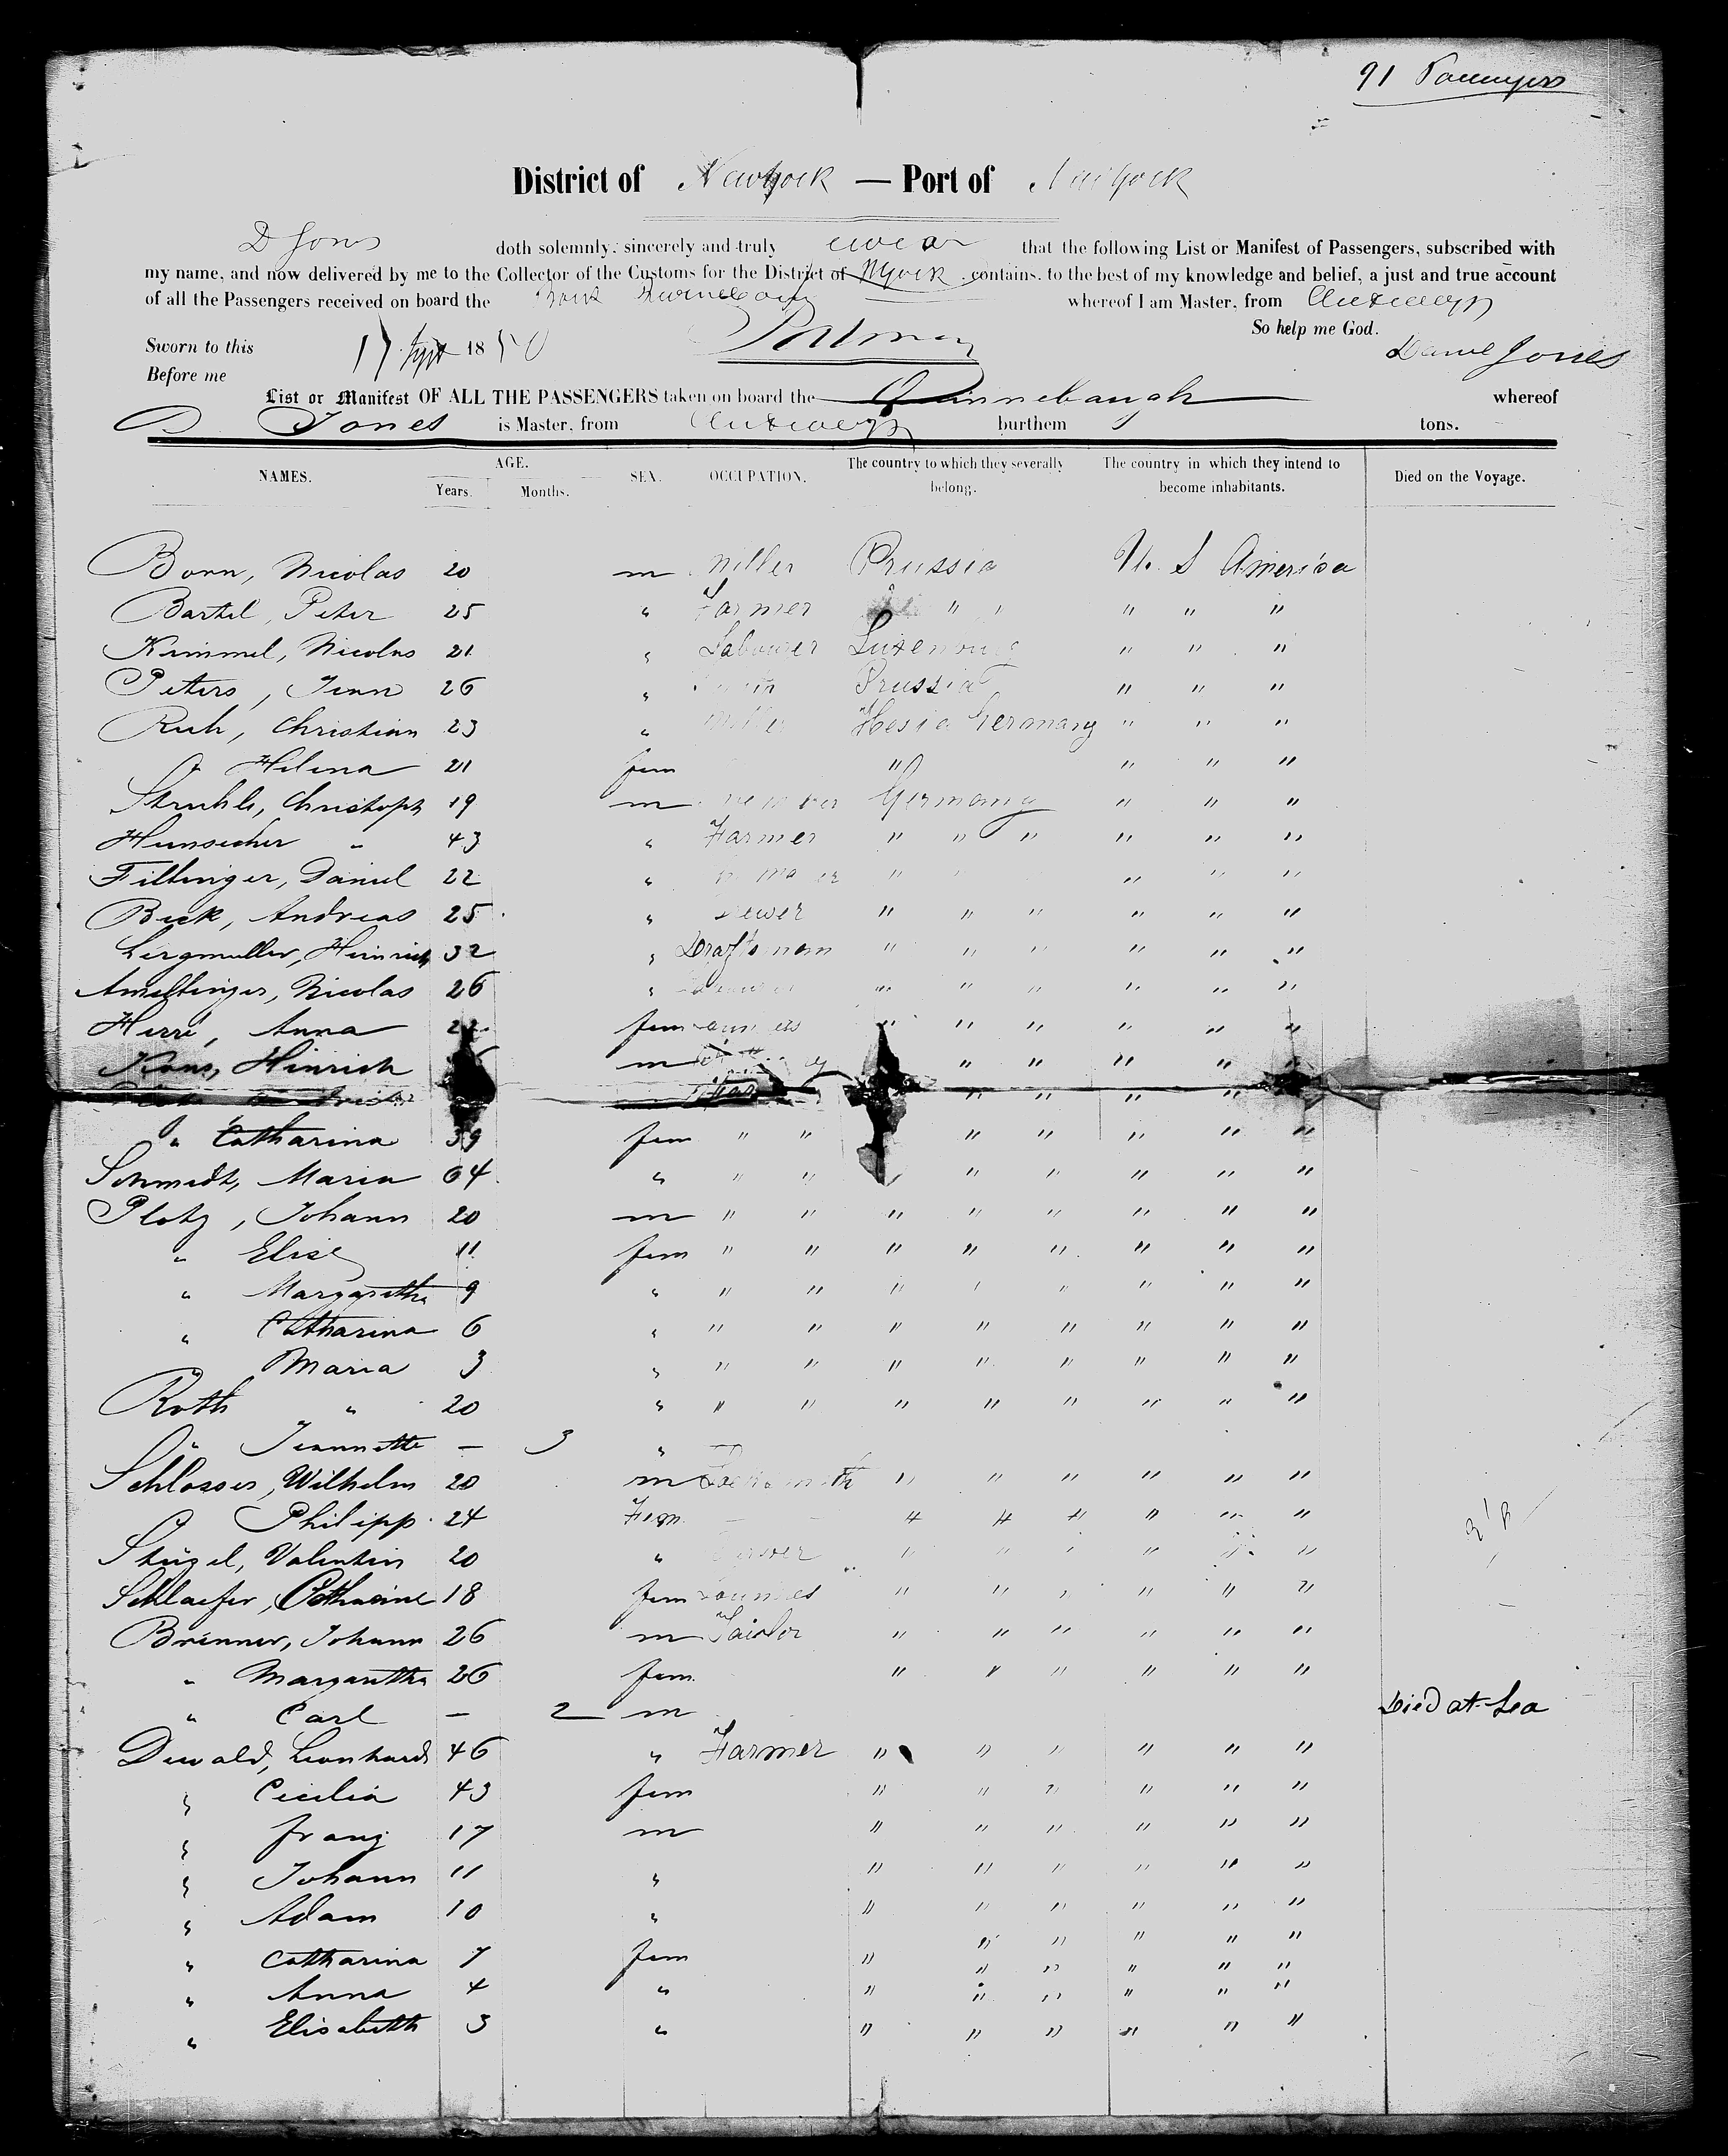 91 Passengers
District of Newyork — Port of Newyork
D Jones doth solemnly, sincerely and truly swear that the following List or Manifest of Passengers, subscribed with
my name, and now delivered by me to the Collector of the Customs for the District of NYork contains, to the best of my knowledge and belief, a just and true account
of all the Passengers received on board the whereof I am Master, from Antwerp
So help me God.
Sworn to this 17 Sept 1850
Daniel Jones
Before me
List or Manifest OF ALL THE PASSENGERS taken on board the Quinnebaugh whereof
D Jones is Master, from Antwerp burthem tons.
NAMES. AGE. Years. Months. SEX. OCCUPATION. The country to which they severally belong. The country in which they intend to become inhabitants. Died on the Voyage.
Born, Nicolas 20 m Miller Prussia U. S America
Bartel, Peter 25 " Farmer " " " " "
Kimmel, Nicolas 21 " Labourer Luxemburg " " "
Peters, Jean 26 " Prussia " " "
Ruh, Christian 23 " Miller Hesia Germany " " "
" Helena 21 fem " " " "
Struhle, Christoph 19 m Germany " " "
Hunsicher " 43 " Farmer " " " " " "
Filtinger, Daniel 22 " " " " " "
Beck, Andreas 25 " " " " " " "
Lirgmuller, Heinrich 32 " Draftsman " " " " " "
Ameltinger, Nicolas 26 " " " " " " "
Herré, Anna 22 fem " " " " " "
Kons, Hinrich m " " " " "
" " " " "
" Catharina 39 fem " " " " " " "
Schmidt, Maria 64 " " " " " " " "
Plotz, Johann 20 m " " " " " " " "
" Elise 11 fem " " " " " " " "
" Margaretha 9 " " " " " " " " "
" Catharina 6 " " " " " " " " "
Maria 3 " " " " " " " " "
Roth " 20 " " " " " " " " "
" Jeannette — 3 " —
Schlosser, Wilhelm 20 m Locksmith " " " " " "
" Philipp 24 Fem — — " " " " " "
Stügel, Valentin 20 " " " " " " "
Schlaefer, Catharine 18 fem " " " " " "
Brenner, Johann 26 m Tailor " " " " " "
" Margaretha 26 fem " " " " " "
" Carl — 2 m Died at Sea
Dewald, Leonhard 46 " Farmer " " " " " "
" Cecilia 43 fem " " " " " "
" Franz 17 m " " " " " "
" Johann 11 " " " " " " "
" Adam 10 " " " " " " "
" Catharina 7 fem " " " " " "
" Anna 4 " " " " " " "
" Elisabeth 3 " " " " " " "